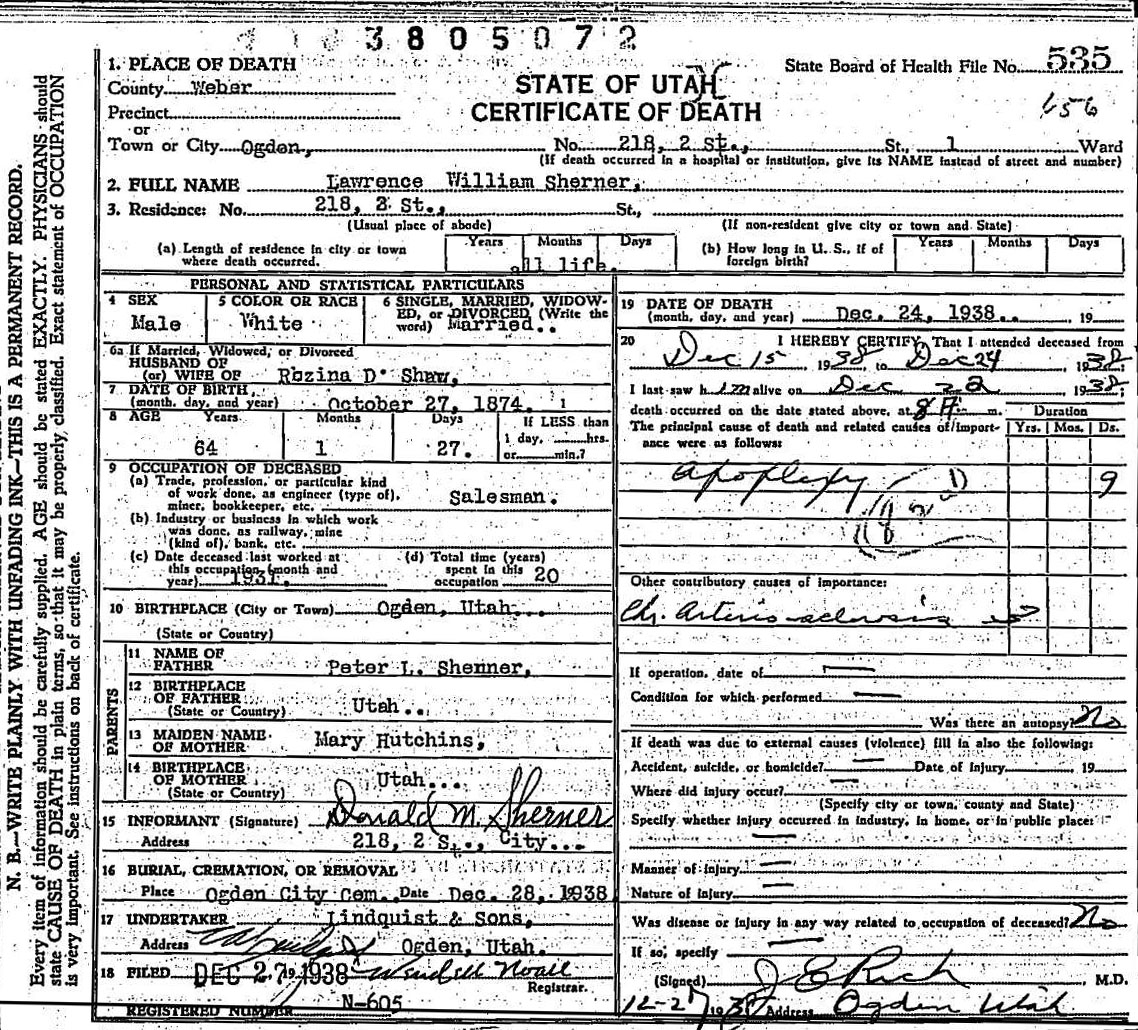 3805072
1. PLACE OF DEATH
County Weber
Precinct
or
Town or City Ogden,
STATE OF UTAH
CERTIFICATE OF DEATH
State Board of Health File No. 535
No. 218, 2 St., St., 1 Ward
(If death occurred in a hospital or institution, give its NAME instead of street and number)
2. FULL NAME Lawrence William Sherner,
3. Residence: No. 218, 2 St., St.,
(Usual place of abode) (If non-resident give city or town and State)
(a) Length of residence in city or town where death occurred. Years Months Days
all life.
(b) How long in U. S., if of foreign birth? Years Months Days
PERSONAL AND STATISTICAL PARTICULARS
4 SEX
Male
5 COLOR OR RACE
White
6 SINGLE, MARRIED, WIDOW-
ED, or DIVORCED (Write the
word) Married..
6a If Married, Widowed, or Divorced
HUSBAND OF
(or) WIFE OF Rozina D. Shaw,
7 DATE OF BIRTH
(month, day, and year) October 27, 1874.
8 AGE Years Months Days If LESS than
1 day, hrs.
or min.?
64 1 27.
9 OCCUPATION OF DECEASED
(a) Trade, profession, or particular kind
of work done, as engineer (type of),
miner, bookkeeper, etc. Salesman.
(b) Industry or business in which work
was done, as railway, mine
(kind of), bank, etc.
(c) Date deceased last worked at
this occupation (month and
year) 1931.
(d) Total time (years)
spent in this
occupation 20
10 BIRTHPLACE (City or Town) Ogden, Utah...
(State or Country)
PARENTS
11 NAME OF
FATHER Peter L. Shenner,
12 BIRTHPLACE
OF FATHER
(State or Country) Utah..
13 MAIDEN NAME
OF MOTHER Mary Hutchins,
14 BIRTHPLACE
OF MOTHER
(State or Country) Utah...
15 INFORMANT (Signature) Donald M. Sherner
Address 218, 2 S., City...
16 BURIAL, CREMATION, OR REMOVAL
Place Ogden City Cem. Date Dec. 28, 1938
17 UNDERTAKER Lindquist & Sons,
Address Ogden, Utah.
18 FILED DEC 27 1938 Wendell Noall
Registrar.
N-605
REGISTERED NUMBER
19 DATE OF DEATH
(month, day, and year) Dec. 24, 1938.. 19
20 I HEREBY CERTIFY, That I attended deceased from
Dec 15 1938, to Dec 24 1938;
I last saw him alive on Dec 22 1938;
death occurred on the date stated above, at 8 A. m.
The principal cause of death and related causes of import-
ance were as follows:
Duration
Yrs. Mos. Ds.
Apoplexy 9
Other contributory causes of importance:
Chr. Arterio-sclerosis
If operation, date of
Condition for which performed
Was there an autopsy? No
If death was due to external causes (violence) fill in also the following:
Accident, suicide, or homicide? Date of injury 19
Where did injury occur?
(Specify city or town, county and State)
Specify whether injury occurred in industry, in home, or in public place:
Manner of injury
Nature of injury
Was disease or injury in any way related to occupation of deceased? No
If so, specify
(Signed) J E Rich, M.D.
Address Ogden Utah
N. B.—WRITE PLAINLY WITH UNFADING INK—THIS IS A PERMANENT RECORD.
Every item of information should be carefully supplied. AGE should be stated EXACTLY. PHYSICIANS should
state CAUSE OF DEATH in plain terms, so that it may be properly classified. Exact statement of OCCUPATION
is very important. See instructions on back of certificate.